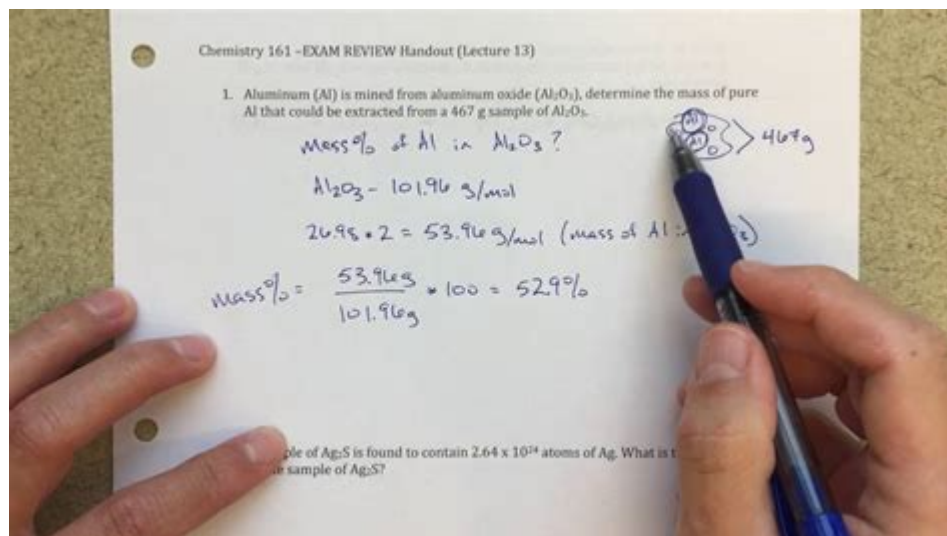 Chemistry 161 –EXAM REVIEW Handout (Lecture 13)
1. Aluminum (Al) is mined from aluminum oxide (Al₂O₃), determine the mass of pure
Al that could be extracted from a 467 g sample of Al₂O₃.
Al O
Al O
467g
Mass% of Al in Al₂O₃?
Al₂O₃ - 101.96 g/mol
26.98 • 2 = 53.96 g/mol (mass of Al
mass% = 53.96g
101.96g
• 100 = 52.9%
ple of Ag₂S is found to contain 2.64 x 10²⁴ atoms of Ag. What is t
sample of Ag₂S?